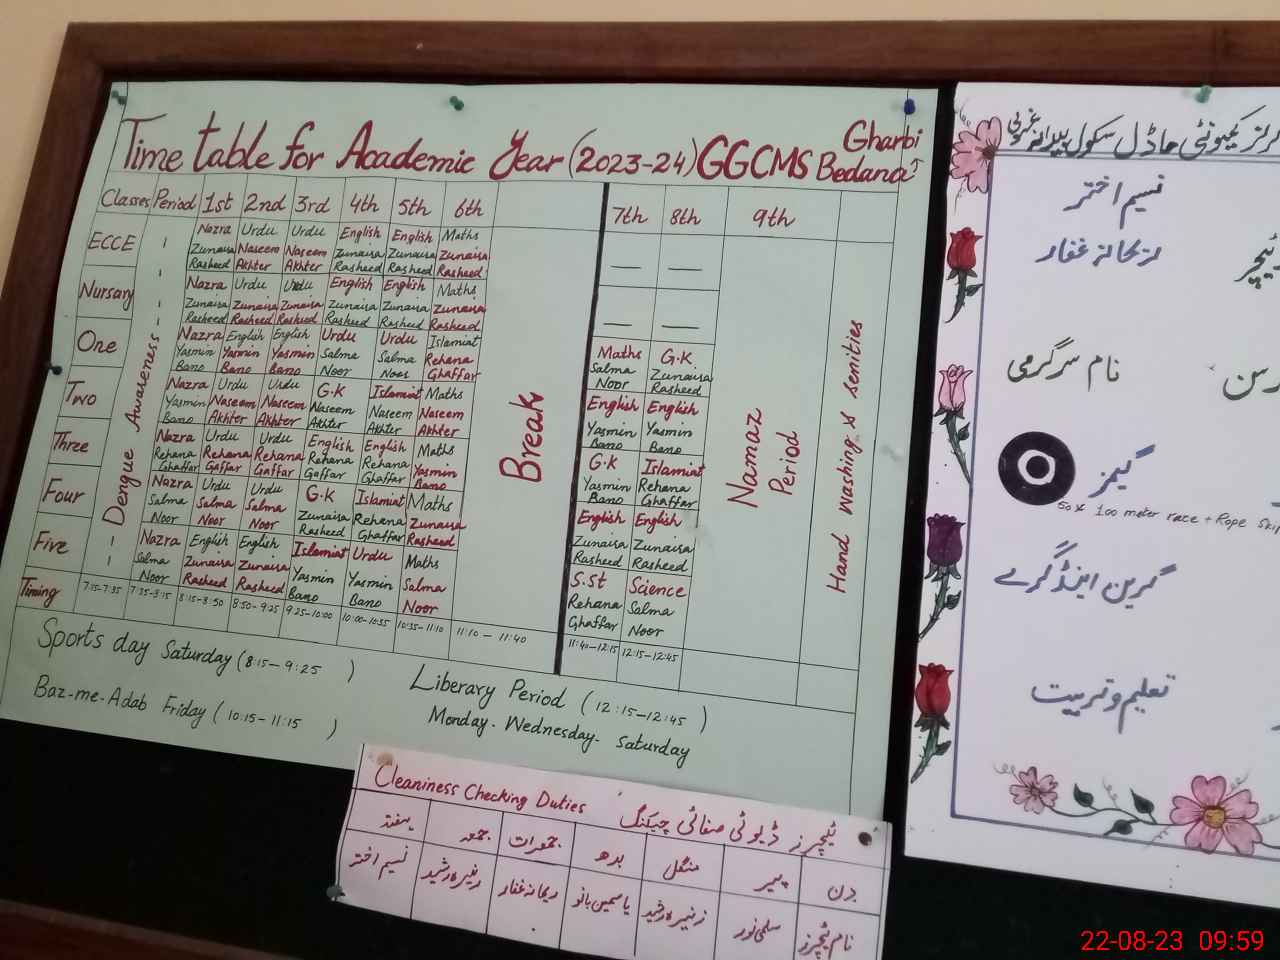 Time table for Academic Year (2023-24) GGCMS Gharbi Bedana
Classes Period 1st 2nd 3rd 4th 5th 6th 7th 8th 9th
ECCE
Nazra Urdu Urdu English English Maths
Zunaira Naseem Naseem Zunaira Zunaira Zunaira
Rasheed Akhter Akhter Rasheed Rasheed Rasheed
Nursary
Nazra Urdu Urdu English English Maths
Zunaira Zunaira Zunaira Zunaira Zunaira Zunaira
Rasheed Rasheed Rasheed Rasheed Rasheed Rasheed
One
Nazra English English Urdu Urdu Islamiat Maths G.K
Yasmin Yasmin Yasmin Salma Salma Rehana Salma Zunaira
Bano Bano Bano Noor Noor Ghaffar Noor Rasheed
Two
Nazra Urdu Urdu G.K Islamiat Maths English English
Yasmin Naseem Naseem Naseem Naseem Naseem Yasmin Yasmin
Bano Akhter Akhter Akhter Akhter Akhter Bano Bano
Three
Nazra Urdu Urdu English English Maths G.K Islamiat
Rehana Rehana Rehana Rehana Rehana Yasmin Yasmin Rehana
Ghaffar Gaffar Gaffar Gaffar Ghaffar Bano Bano Ghaffar
Four
Nazra Urdu Urdu G.K Islamiat Maths English English
Salma Salma Salma Zunaira Rehana Zunaira Zunaira Zunaira
Noor Noor Noor Rasheed Ghaffar Rasheed Rasheed Rasheed
Five
Nazra English English Islamiat Urdu Maths S.St Science
Salma Zunaira Zunaira Yasmin Yasmin Salma Rehana Salma
Noor Rasheed Rasheed Bano Bano Noor Ghaffar Noor
Timing 7:15-7:35 7:35-8:15 8:15-8:50 8:50-9:25 9:25-10:00 10:00-10:35 10:35-11:10 11:10-11:40 11:40-12:15 12:15-12:45
Dengue Awareness
Break
Namaz Period
Hand washing & senities
Sports day Saturday (8:15-9:25 )
Baz-me-Adab Friday (10:15-11:15 )
Liberary Period (12:15-12:45 )
Monday. Wednesday. Saturday
Cleaniness Checking Duties ٹیچرز ڈیوٹی صفائی چیکنگ
دن پیر منگل بدھ جمعرات جمعہ ہفتہ
نام ٹیچرز سلمیٰ نور زنیرہ رشید یاسمین بانو ریحانہ غفار زنیرہ رشید نسیم اختر
گرلز کمیونٹی ماڈل سکول بیدانہ غربی
نسیم اختر
ریحانہ غفار
ٹیچر
نام سرگرمی
گیمز
100 meter race + Rope Skip
گرین اینڈ گرے
تعلیم و تربیت
22-08-23 09:59